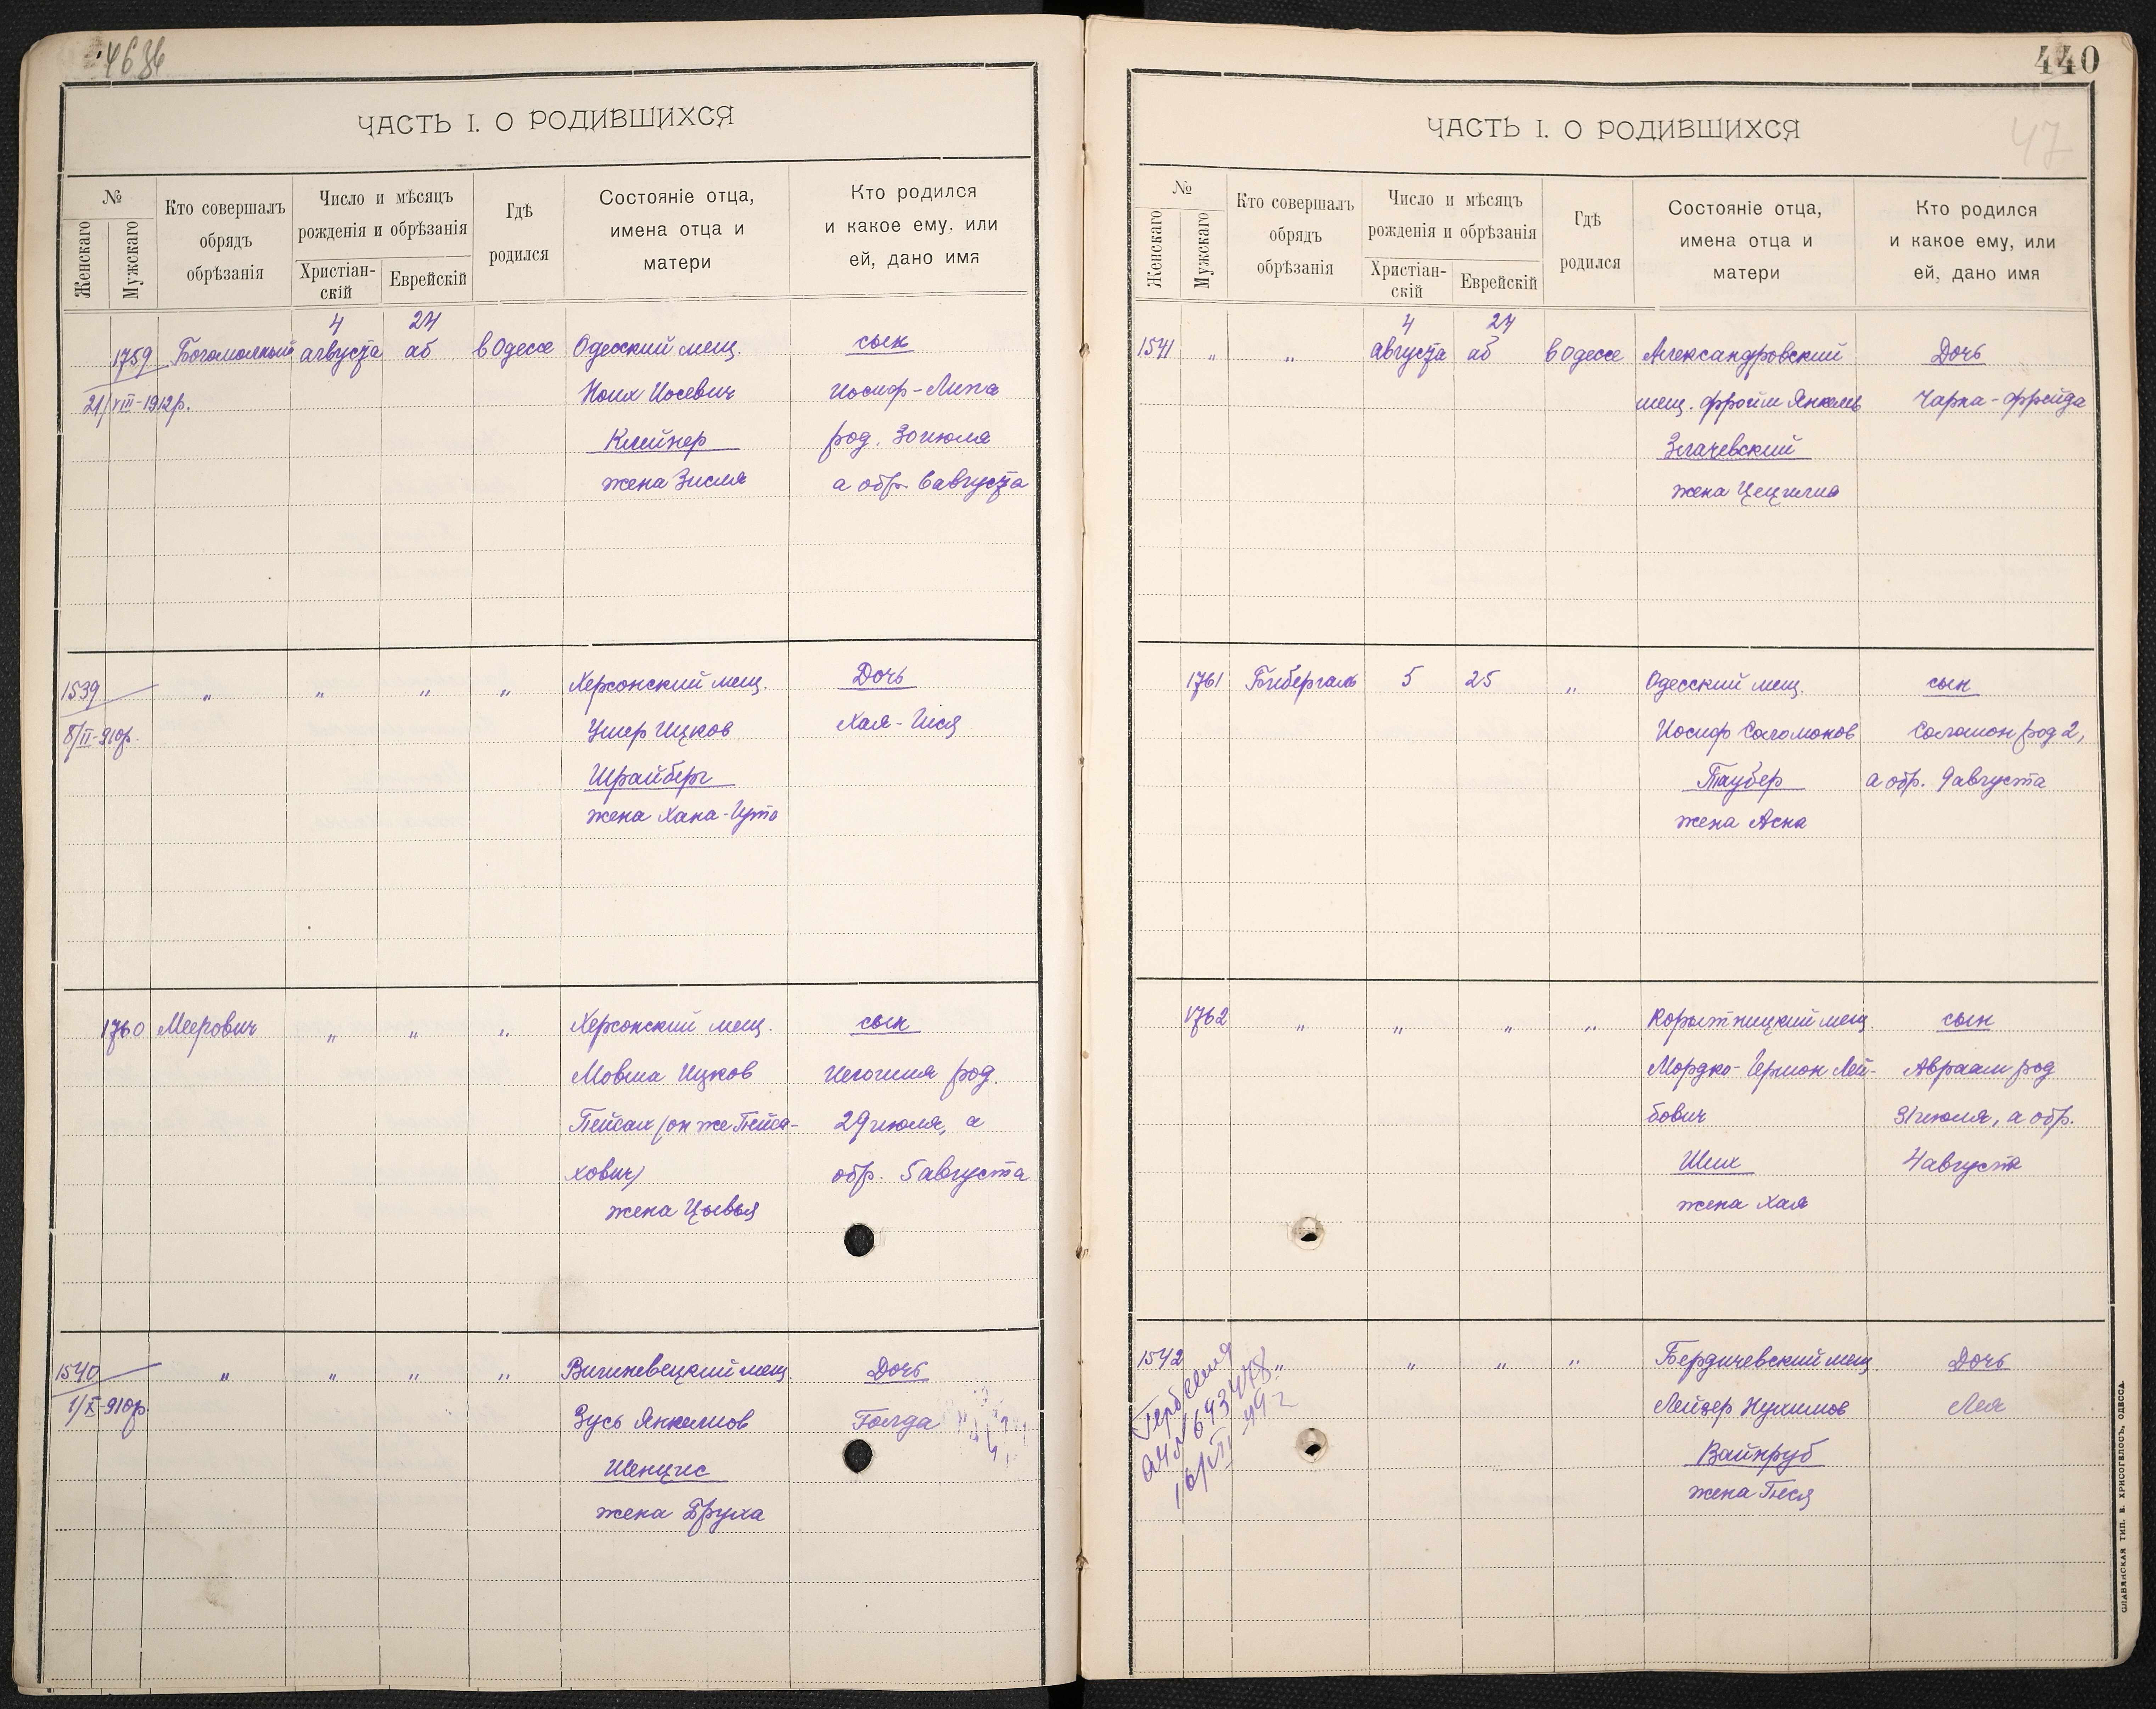 ЧАСТЬ I. О РОДИВШИХСЯ
№
Женскаго
Мужскаго
Кто совершалъ
обрядъ
обрѣзанія
Число и мѣсяцъ
рожденія и обрѣзанія
Христіан-
скій
Еврейскій
Гдѣ
родился
Состояніе отца,
имена отца и
матери
Кто родился
и какое ему, или
ей, дано имя
4 24
1759 Богомольный августа аб в Одессе Одесский мещ. сын
21/VIII-1912р. Ноих Иосевич Иосиф-Липа
Клейнер род. 30 июля
жена Зисля а обр. 6 августа
1539 " " " " Херсонский мещ. Дочь
8/II-910р. Ушер Ицков Хая-Ися
Шрайберг
жена Хана-Ита
1760 Меерович " " " Херсонский мещ. сын
Мовша Ицков род.
Пейсах (он же Пейса- 29 июля, а
хович) обр. 5 августа
жена Цывья
1540 " " " " Вишневецкий мещ. Дочь
1/X-910р. Зусь Янкелиов Голда
Шенцис
жена Бруха
440
47
ЧАСТЬ I. О РОДИВШИХСЯ
№
Женскаго
Мужскаго
Кто совершалъ
обрядъ
обрѣзанія
Число и мѣсяцъ
рожденія и обрѣзанія
Христіан-
скій
Еврейскій
Гдѣ
родился
Состояніе отца,
имена отца и
матери
Кто родился
и какое ему, или
ей, дано имя
4 24
1541 " " августа аб в Одессе Александровский Дочь
мещ. Фроим Янкель Чарна-Фрейда
Злачевский
жена Цецилия
1761 Бибергаль 5 25 " Одесский мещ. сын
Иосиф Саломонов Саломон род 2,
Таубер а обр. 9 августа
жена Асна
1762 " " " " Корытницкий мещ. сын
Мордко-Гершон Лей- Авраам род
бович 31 июля, а обр.
Ших 4 августа
жена Хая
1542 " " " " Бердичевский мещ. Дочь
Лейзер Нухимов Лея
Вайнруб
жена Песя
СЛАВЯНСКАЯ ТИП. Н. ХРИСОГЕЛОСЪ, ОДЕССА.